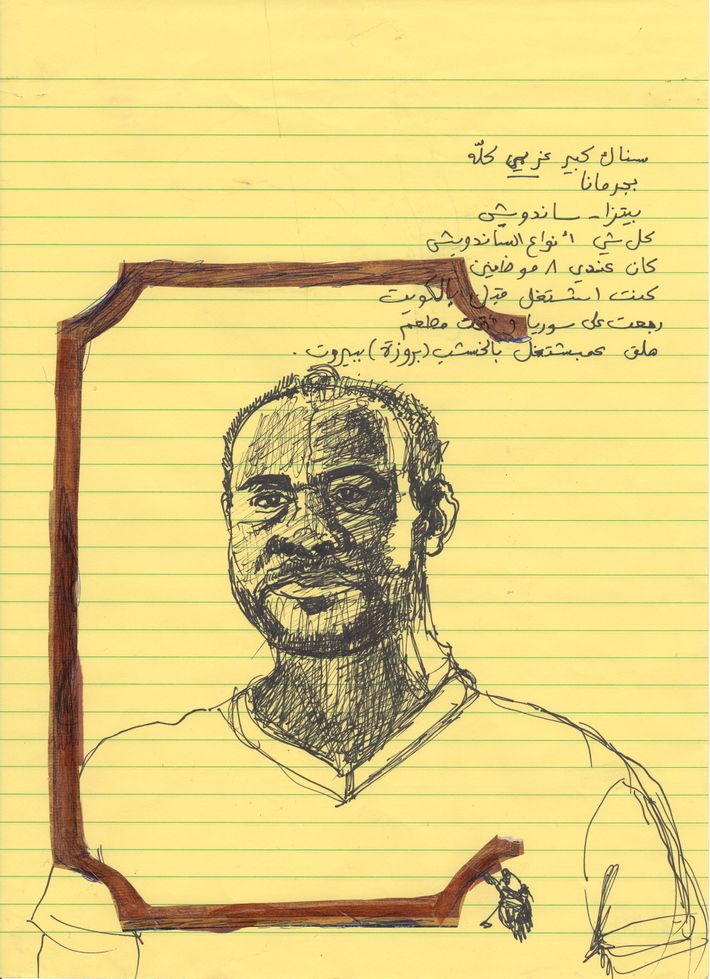 سناك كبير غربي كلّه
بجرمانا
بيتزا - ساندويش
كل شي أنواع الساندويش
كان عندي ٨ موظفين
كنت اشتغل قبل بالكويت
رجعت على سوريا وفتحت مطعم
هلق عم بشتغل بالخشب (بروزة) ببيروت.